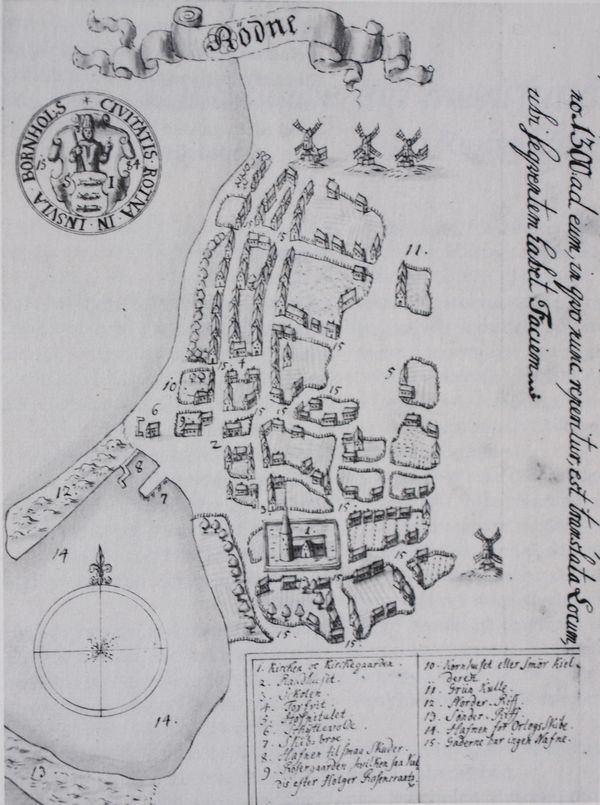 Rödne
CIVITATIS · ROTNA · IN · INSVLA BORNHOLS
15 54
S I
no 1300. ad eum, in qvo nunc reperitur, est translata Locum,
ubi seqventem habet Faciem
11.
15
15
4
10
5
15
6
9
15
15
2
8
7
12
15
3
15
14
1.
15
15
15.
15
14.
13
1. Kirchen oc Kirchegaarden.
2. Raadhuset.
3. Skolen
4. Torfvit
5. Hospitalet
6.
7 Skibs broe.
8. Hafnen til smaa Skuder.
9 Rosengaarden, hvilken saa kal
dis efter Holger Rosencrantz
10. Kornhuset eller Smör kiel
deren
11 Grün Kulle.
12. Norder Riff.
13. Sönder Riff.
14. Hafnen for Orlogs Skibe.
15. Gaderne har ingen Nafne.